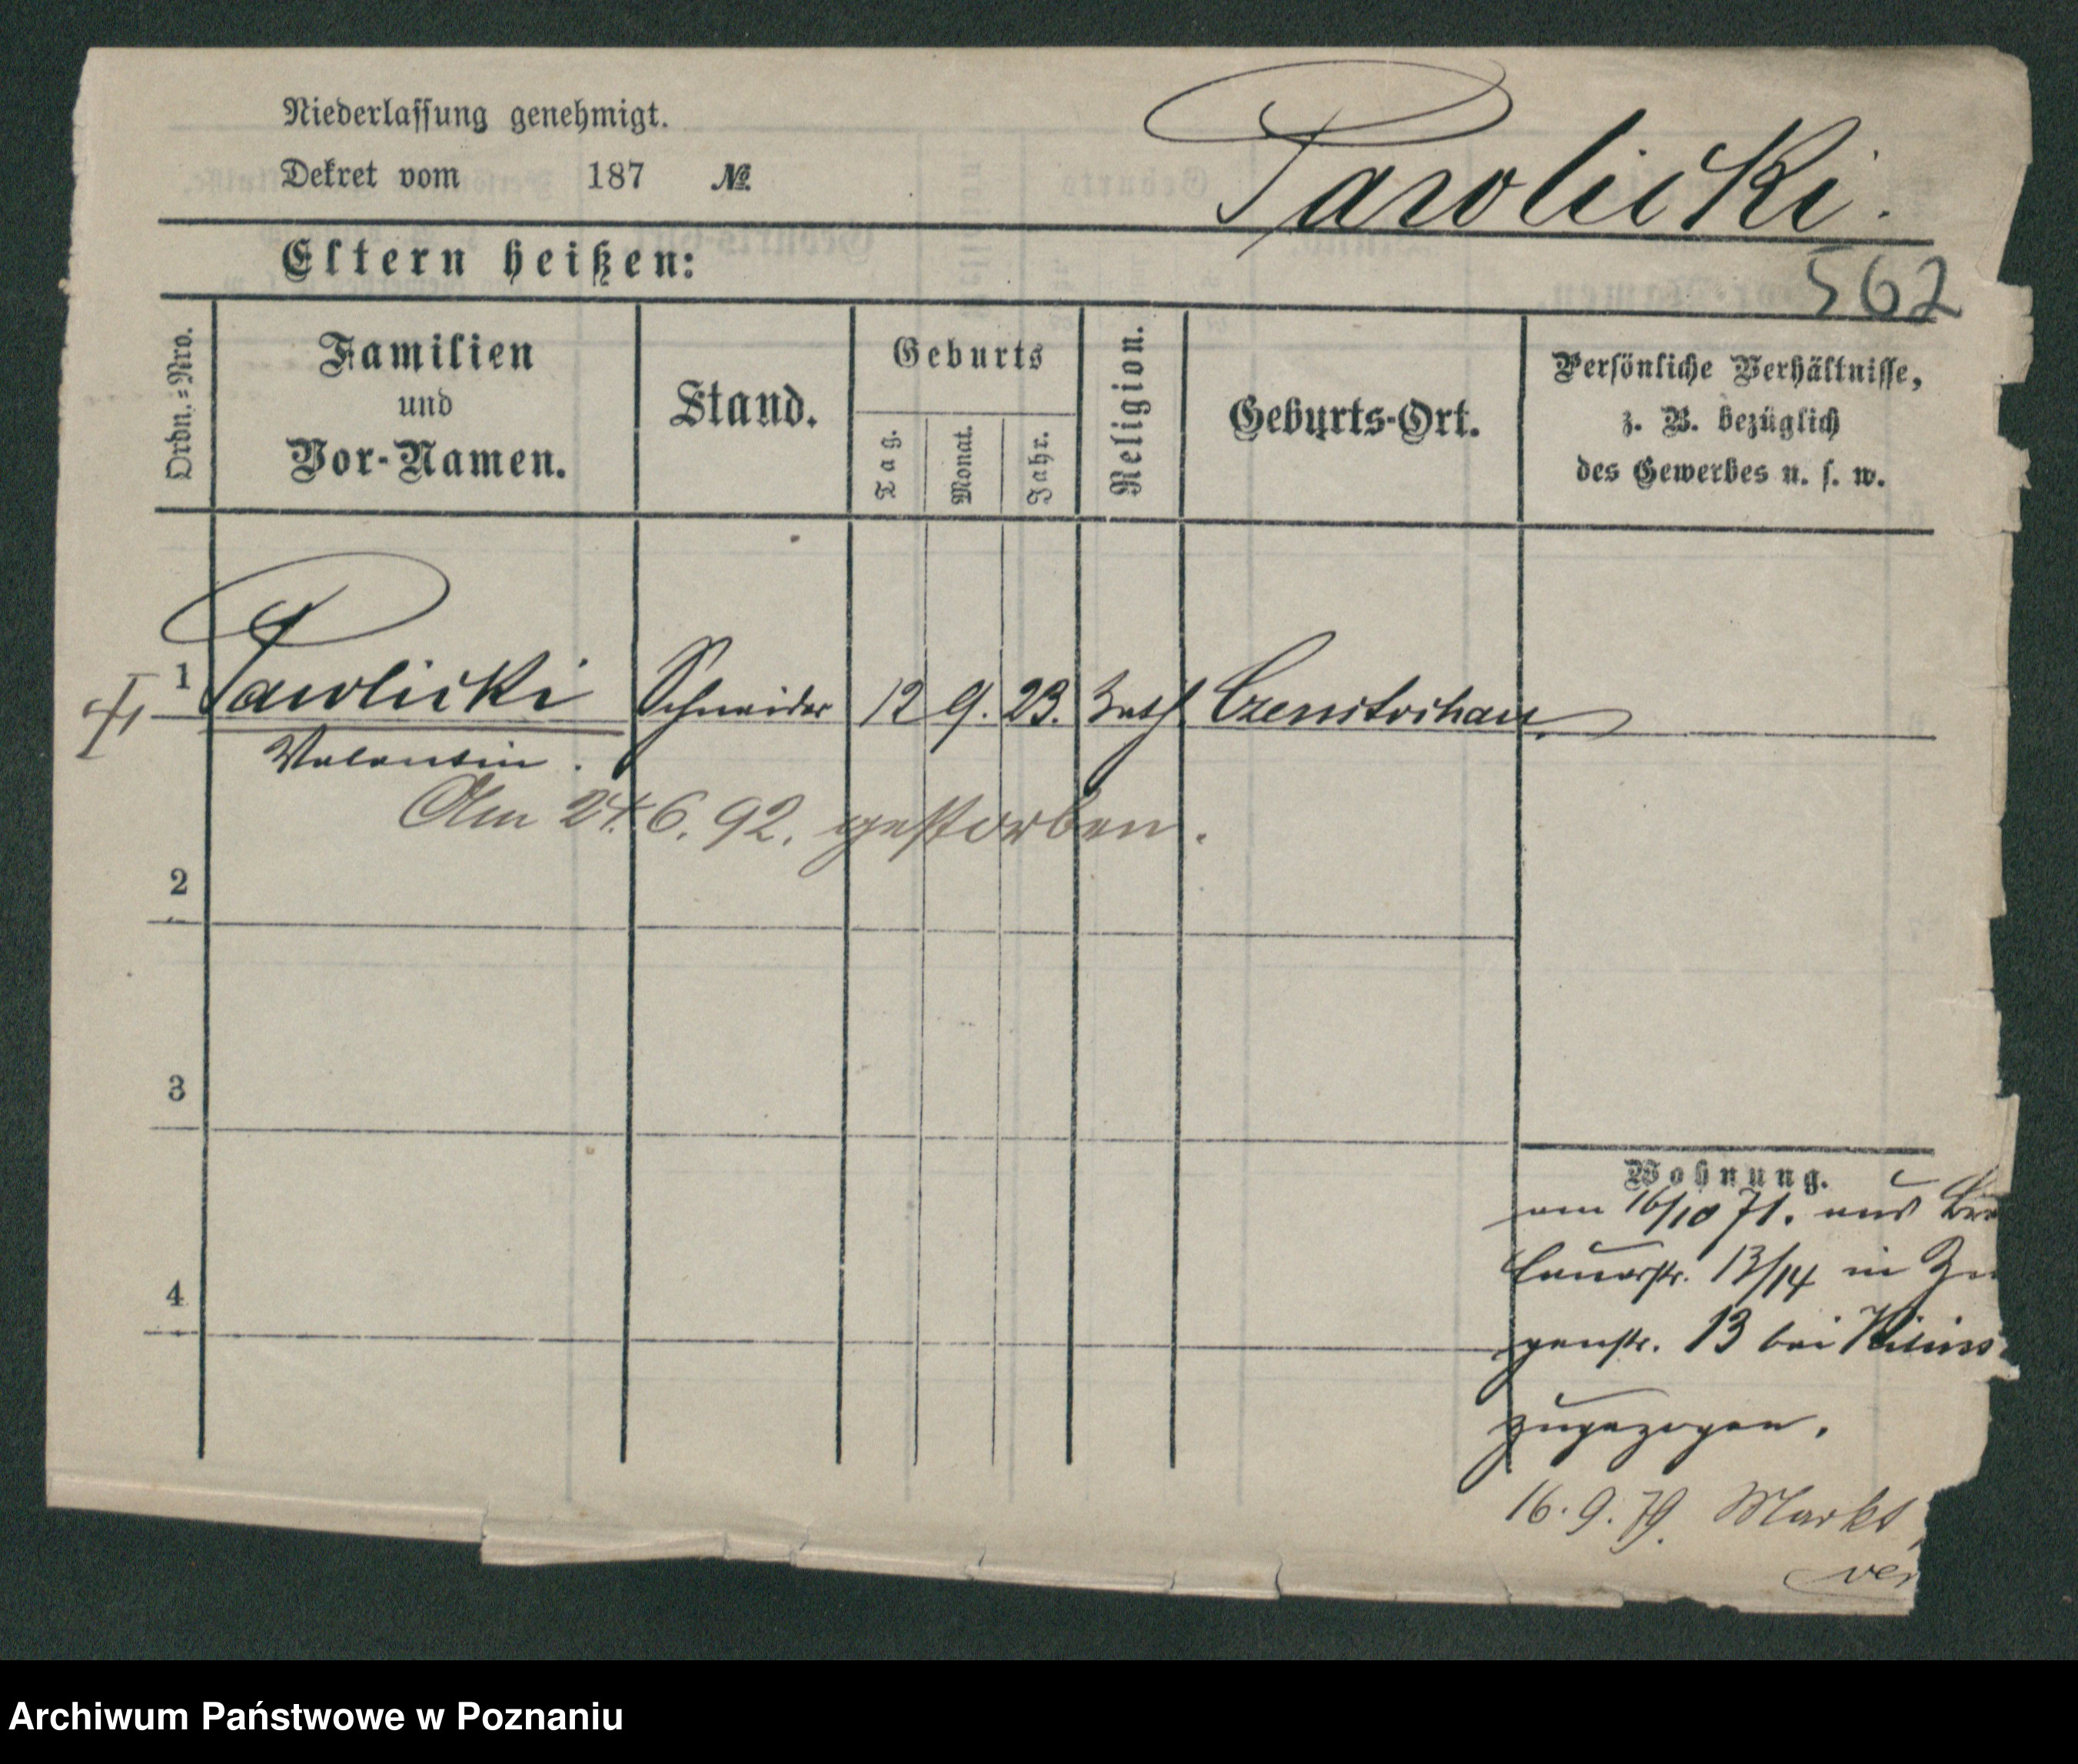 Niederlassung genehmigt.
Dekret vom 187 №
Pawlicki.
Eltern heißen:
562
Ordn.=Nro.
Familien
und
Vor-Namen.
Stand.
Geburts
Tag.
Monat.
Jahr.
Religion.
Geburts-Ort.
Persönliche Verhältnisse,
z. B. bezüglich
des Gewerbes u. s. w.
1 Pawlicki Schneider 12 9. 23. kath Czenstochau
Valentin.
Am 24.6.92. gestorben.
2
3
4
Wohnung.
am 16/10 71. aus
13/14 in
13 bei
zugezogen.
16.9.79. Markt
ver
Archiwum Państwowe w Poznaniu